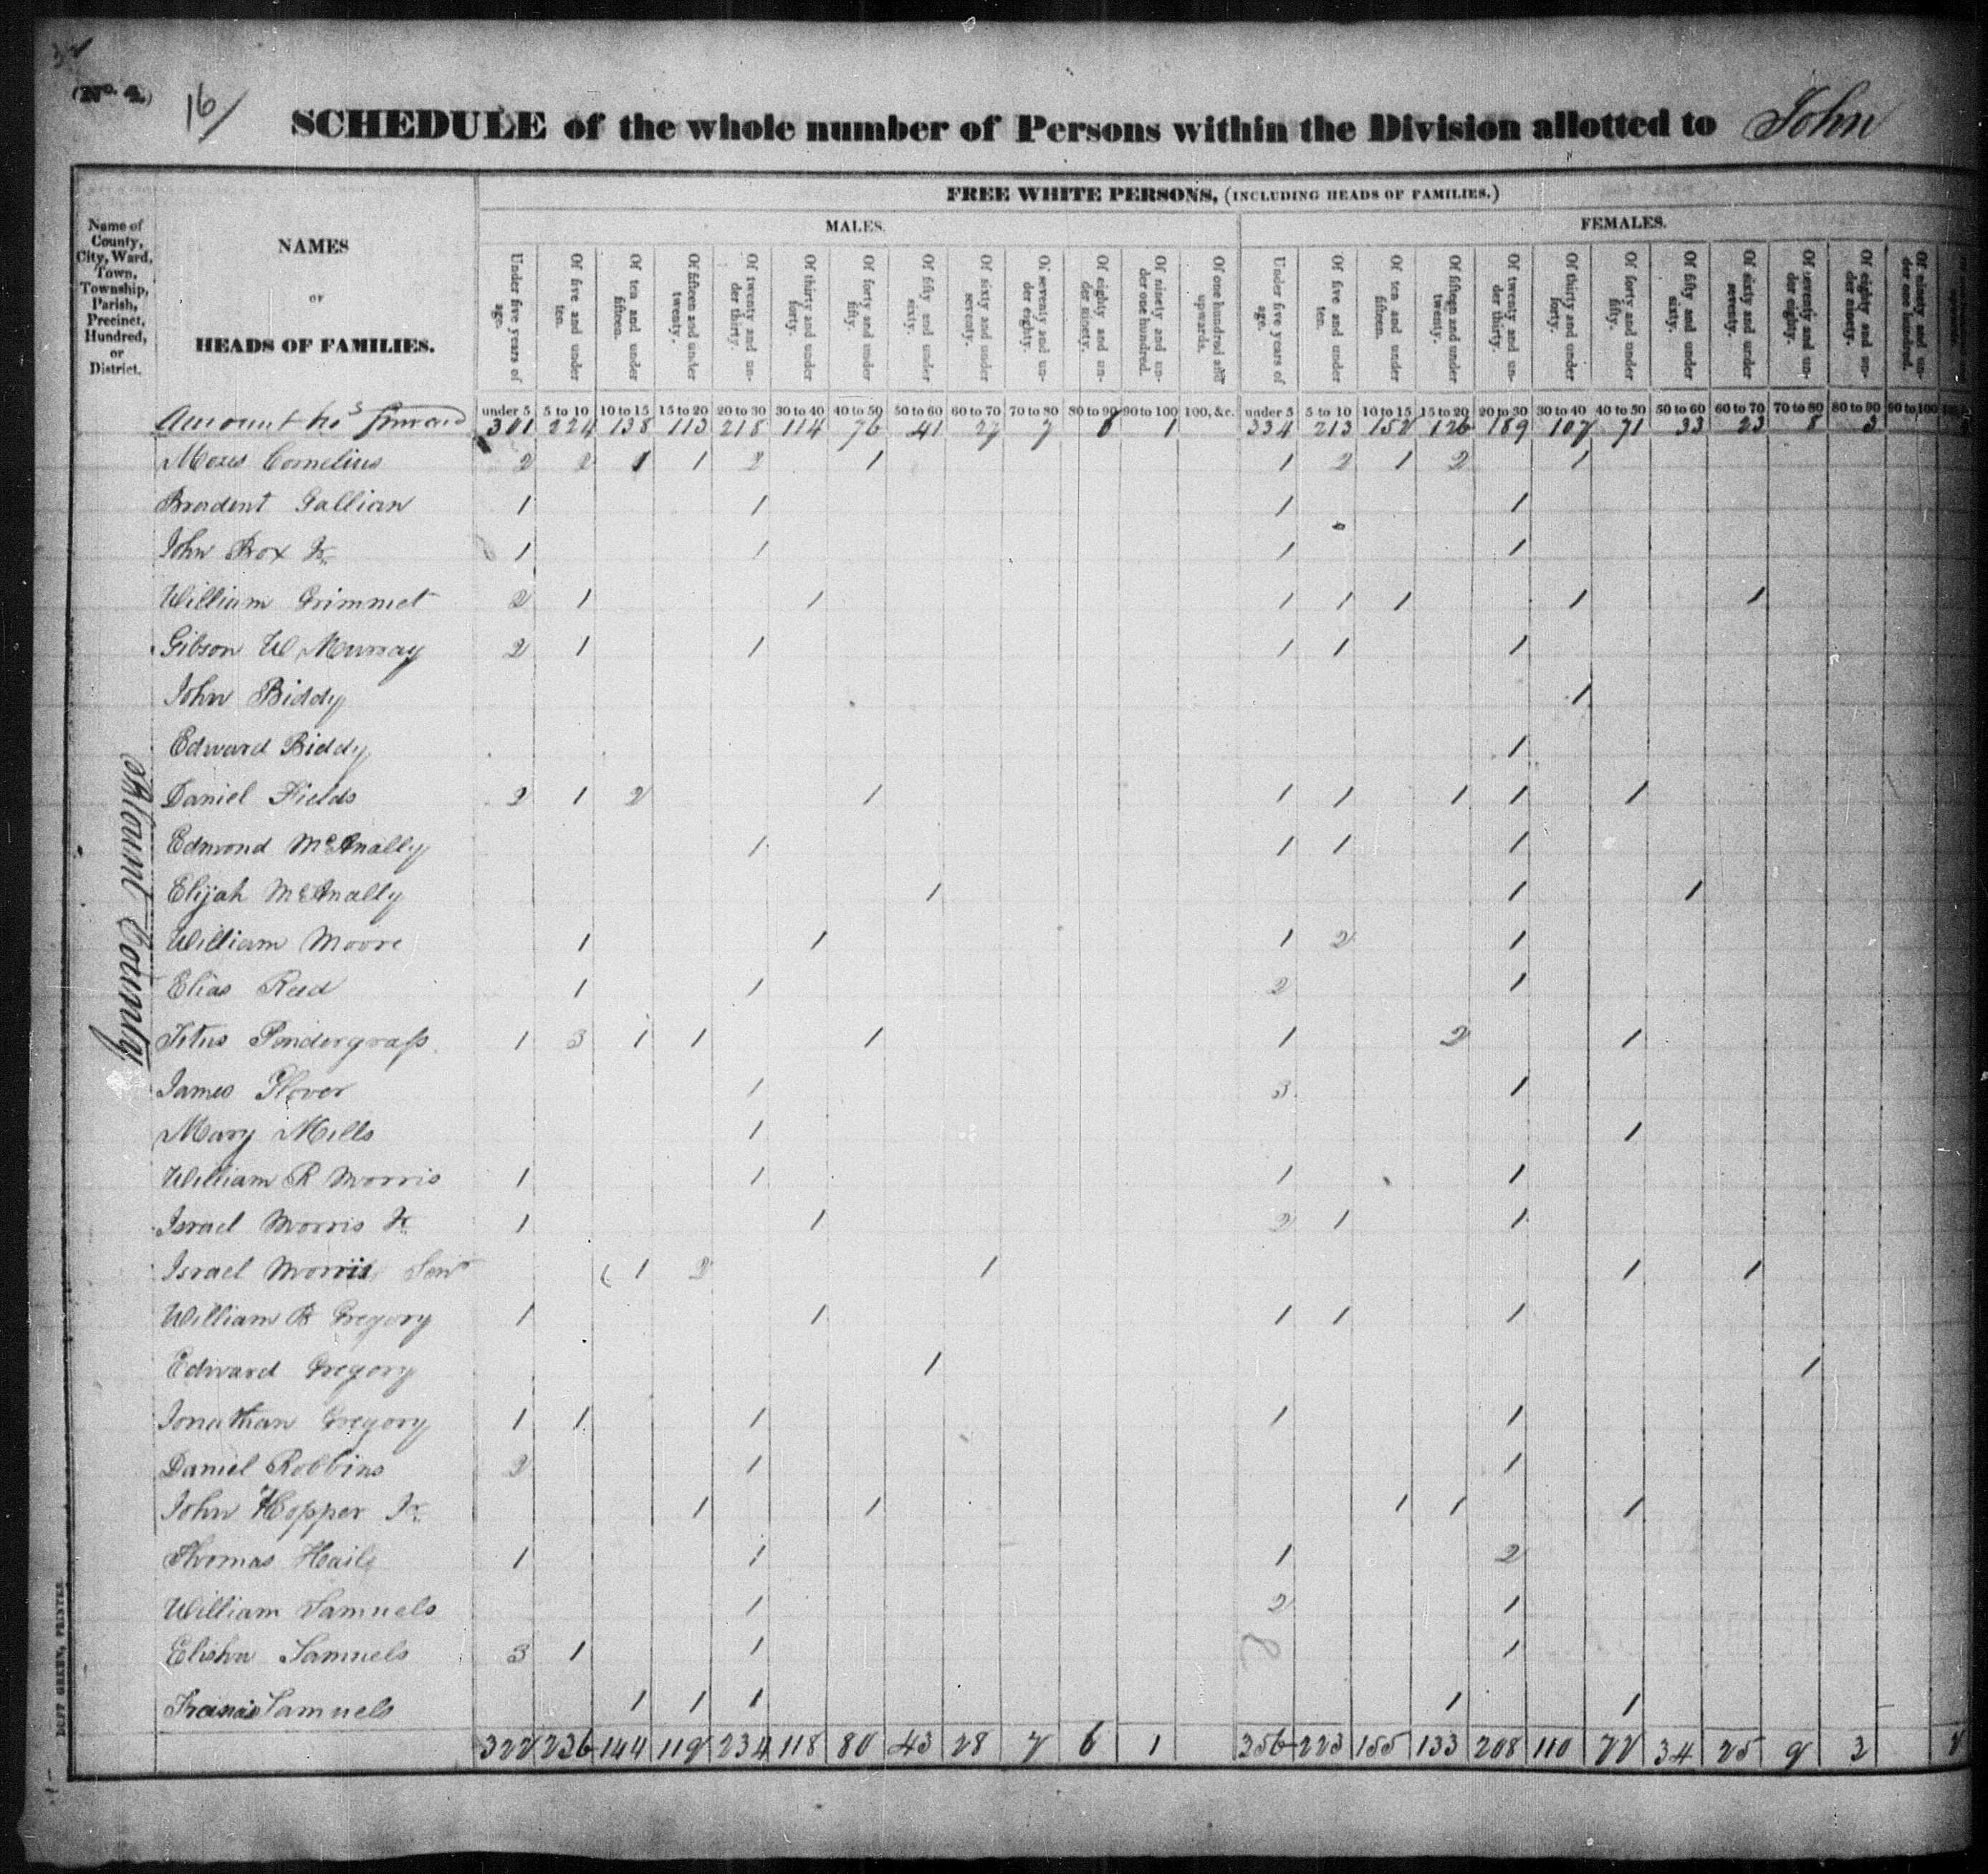 32
(No. 4.) 16/
SCHEDULE of the whole number of Persons within the Division allotted to John
FREE WHITE PERSONS, (INCLUDING HEADS OF FAMILIES.)
MALES. FEMALES.
Name of County, City, Ward, Town, Township, Parish, Precinct, Hundred, or District.
NAMES
OF
HEADS OF FAMILIES.
Under five years of age. Of five and under ten. Of ten and under fifteen. Of fifteen and under twenty. Of twenty and under thirty. Of thirty and under forty. Of forty and under fifty. Of fifty and under sixty. Of sixty and under seventy. Of seventy and under eighty. Of eighty and under ninety. Of ninety and under one hundred. Of one hundred and upwards. Under five years of age. Of five and under ten. Of ten and under fifteen. Of fifteen and under twenty. Of twenty and under thirty. Of thirty and under forty. Of forty and under fifty. Of fifty and under sixty. Of sixty and under seventy. Of seventy and under eighty. Of eighty and under ninety. Of ninety and under one hundred.
under 5 5 to 10 10 to 15 15 to 20 20 to 30 30 to 40 40 to 50 50 to 60 60 to 70 70 to 80 80 to 90 90 to 100 100, &c. under 5 5 to 10 10 to 15 15 to 20 20 to 30 30 to 40 40 to 50 50 to 60 60 to 70 70 to 80 80 to 90 90 to 100
Amount 301 224 138 113 218 114 76 41 27 7 6 1 334 213 152 126 189 107 71 33 23 8 3
Moses Cornelius 2 2 1 1 2 1 1 2 1 2 1
Bradent Gallian 1 1 1 1
John Box Jr. 1 1 1 1
William Grimmet 2 1 1 1 1 1 1 1
Gibson W Murray 2 1 1 1 1 1
John Biddy 1
Edward Biddy 1
Daniel Fields 2 1 2 1 1 1 1 1 1
Edmond McAnally 1 1 1 1
Elijah McAnally 1 1 1
William Moore 1 1 1 2 1
Elias Reed 1 1 2 1
Titus Pendergrass 1 3 1 1 1 1 2 1
James Glover 1 3 1
Mary Mills 1 1
William R Morris 1 1 1 1
Israel Morris Jr. 1 1 2 1 1
Israel Morris Senr 1 2 1 1 1
William B Gregory 1 1 1 1 1
Edward Gregory 1 1
Jonathan Gregory 1 1 1 1 1
Daniel Robbins 2 1 1
John Hopper Jr. 1 1 1 1 1
Thomas Haile 1 1 1 2
William Samuels 1 2 1
Elisha Samuels 3 1 1 1
Francis Samuels 1 1 1 1 1
322 236 144 119 234 118 80 43 28 7 6 1 356 223 155 133 208 110 77 34 25 9 3
Blount County
DUFF GREEN, PRINTER.